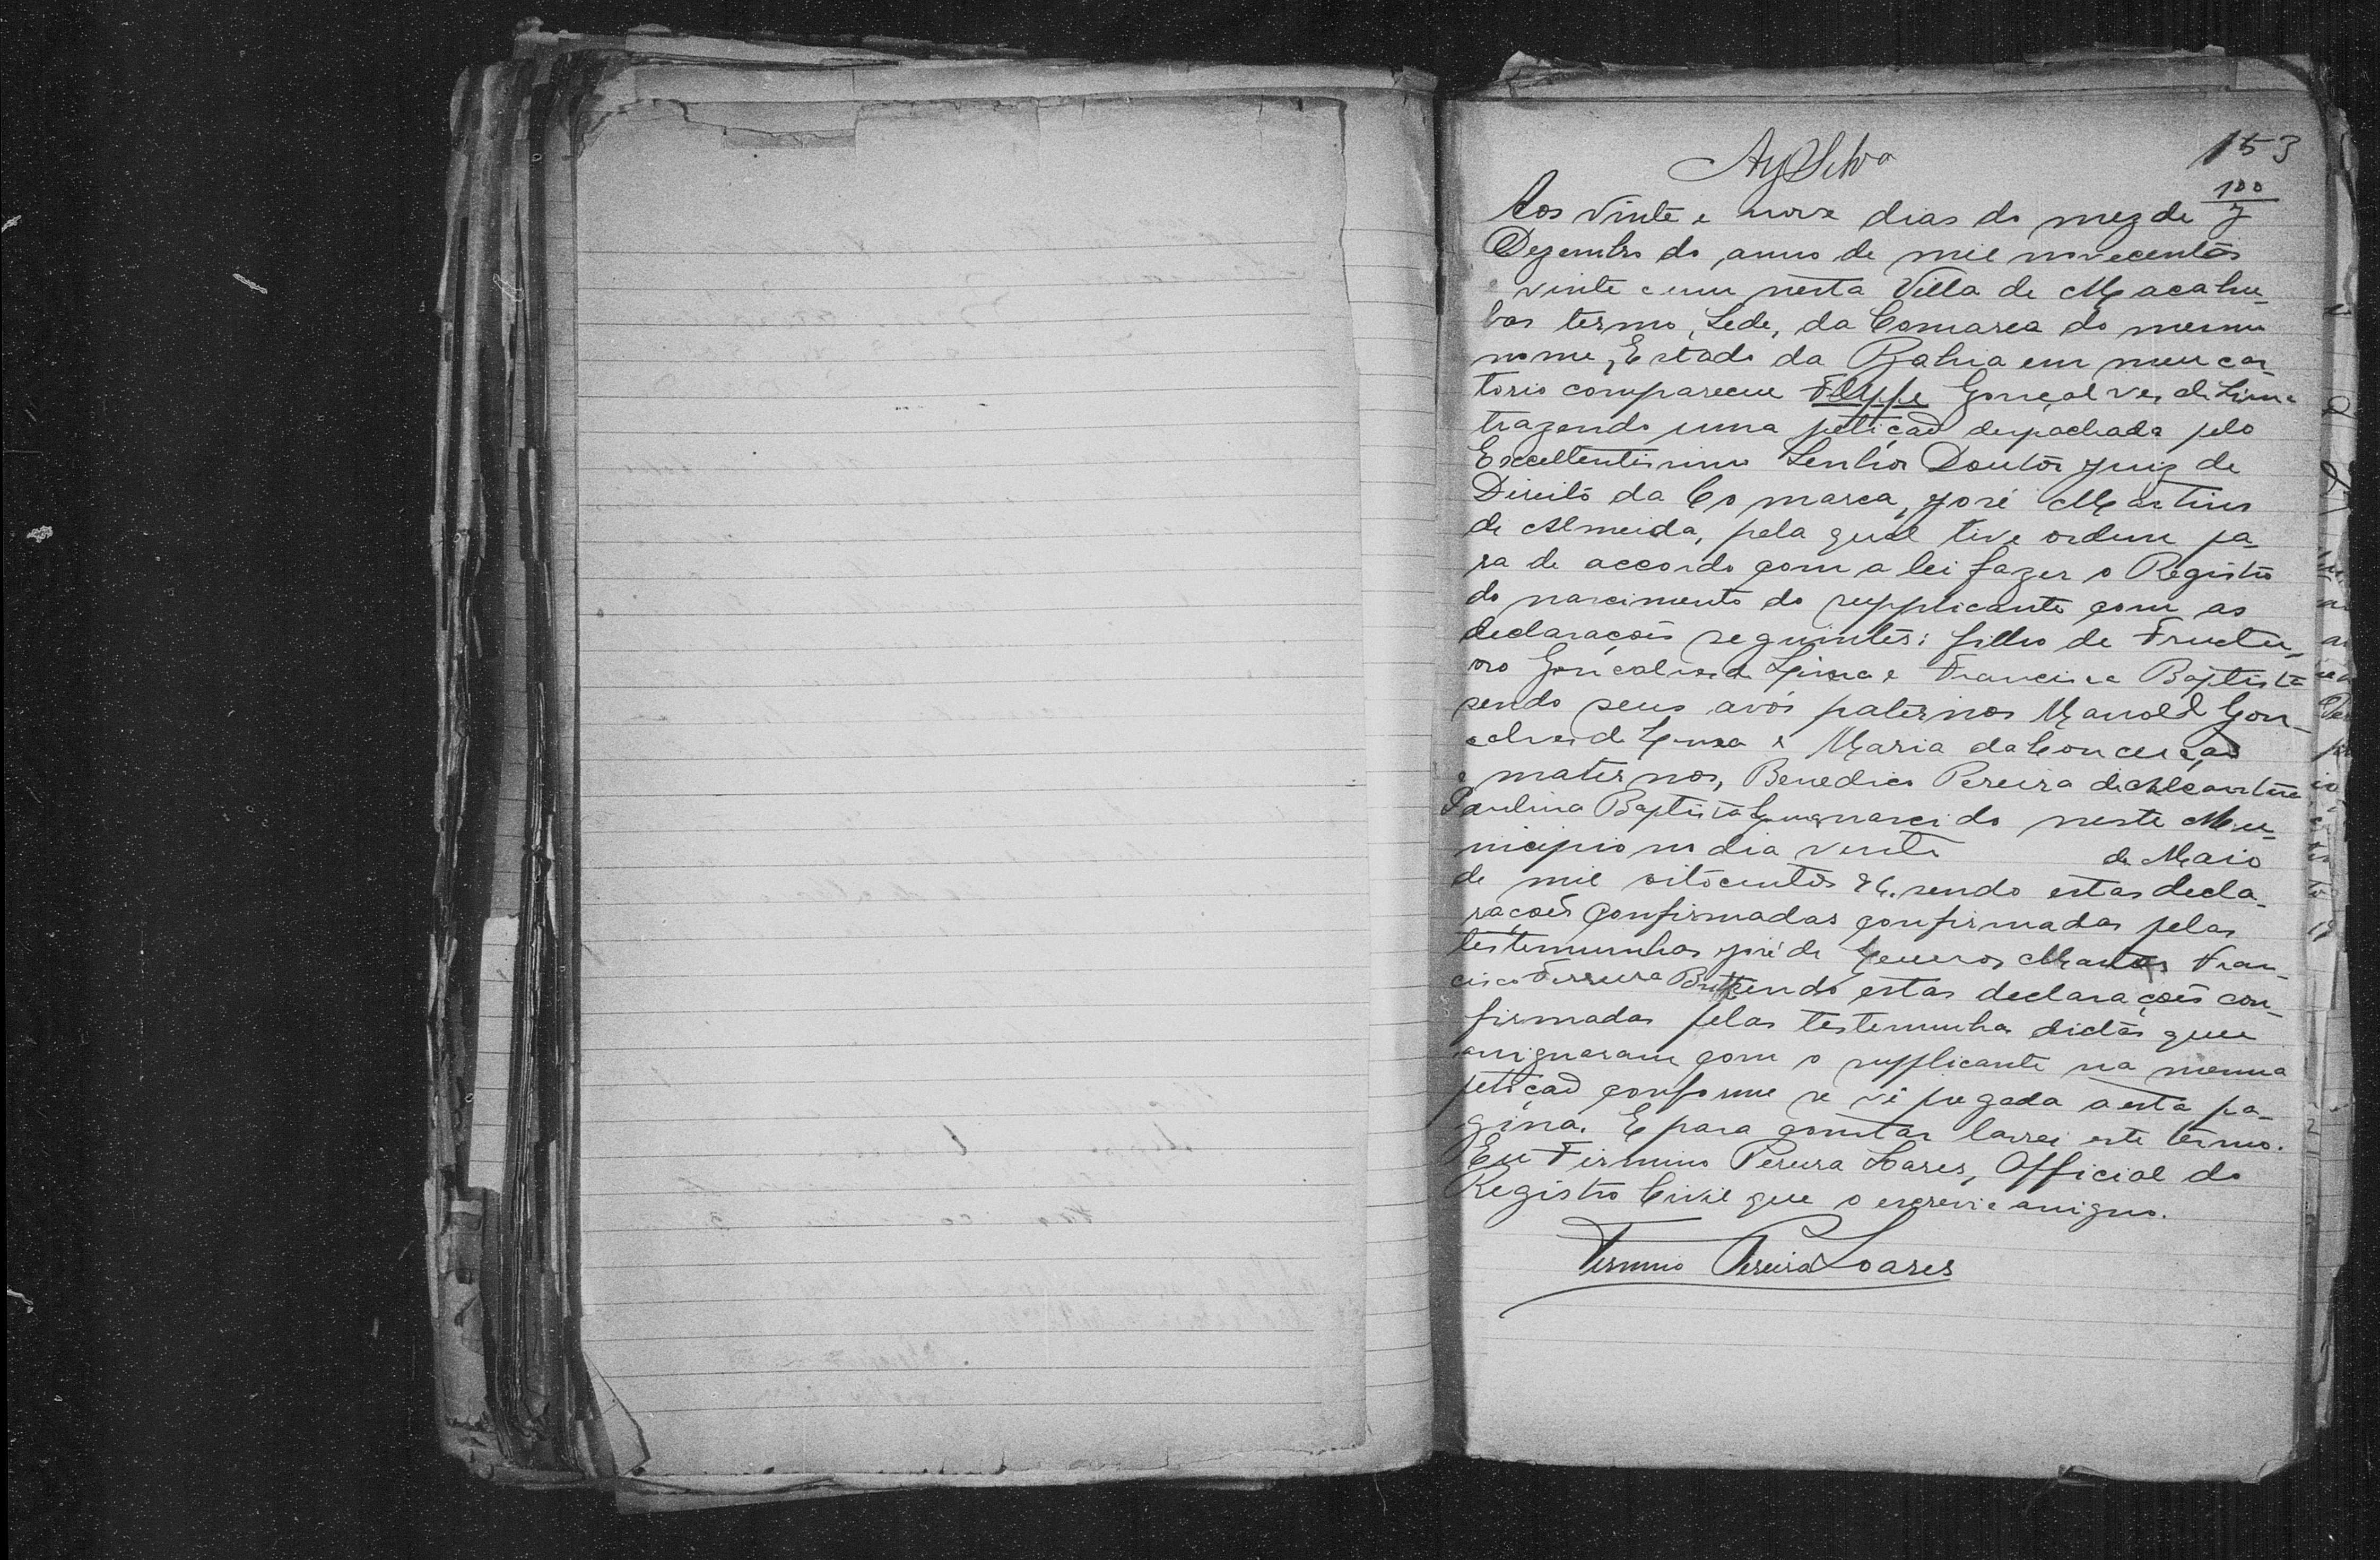 153
AySilva
100
7
Aos vinte e nove dias do mez de
Dezembro do anno de mil novecentos
vinte e um nesta Villa de Macahu-
bas termo, Sede, da Comarca do mesmo
nome, Estado da Bahia em meu car-
torio compareceu Felyppe Gonçalves de Lima
trazendo uma petição despachada pelo
Excellentissimo Senhor Doutor Juiz de
Direito da Comarca, José Martins
de Almeida, pela qual tive ordem pa-
ra de accordo com a lei fazer o Registro
do nascimento do supplicante com as
declarações seguintes: filho de Fructu-
oso Gonçalves de Lima e Francisca Baptista
sendo seus avós paternos Manoel Gon-
calves de Lima e Maria da Conceição
e maternos, Benedicto Pereira de Alcantara
Paulina Baptista nascido neste Mu-
nicipio no dia vinte de Maio
de mil oitocentos 96. sendo estas decla-
rações confirmadas confirmadas pelas
testemunhas José de Mattos Fran-
cisco Ferreira sendo estas declarações con-
firmadas pelas testemunha dictas que
assignaram com o supplicante na mesma
petição conforme se vê pregada a esta pa-
gina. E para constar lavrei este termo.
Eu Firmino Pereira Soares, Official do
Registro Civil que o escrevi e assigno.
Firmino Pereira Soares